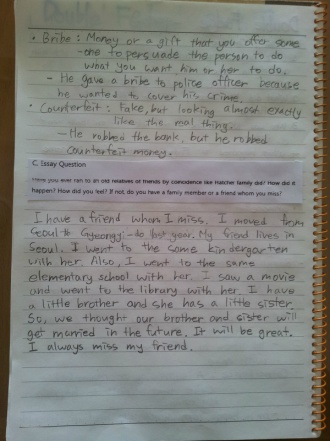 • Bribe : Money or a gift that you offer some
-one to persuade the person to do
what you want him or her to do.
- He gave a bribe to police officer because
he wanted to cover his crime.
• Counterfeit : Fake, but looking almost exactly
like the real thing.
- He robbed the bank, but he robbed
counterfeit money.
C. Essay Question
Have you ever ran to an old relatives or friends by coincidence like Hatcher family did? How did it
happen? How did you feel? If not, do you have a family member or a friend whom you miss?
I have a friend whom I miss. I moved from
Seoul to Gyeonggi-do last year. My friend lives in
Seoul. I went to the same kindergarten
with her. Also, I went to the same
elementary school with her. I saw a movie
and went to the library with her. I have
a little brother and she has a little sister.
So, we thought our brother and sister will
get married in the future. It will be great.
I always miss my friend.